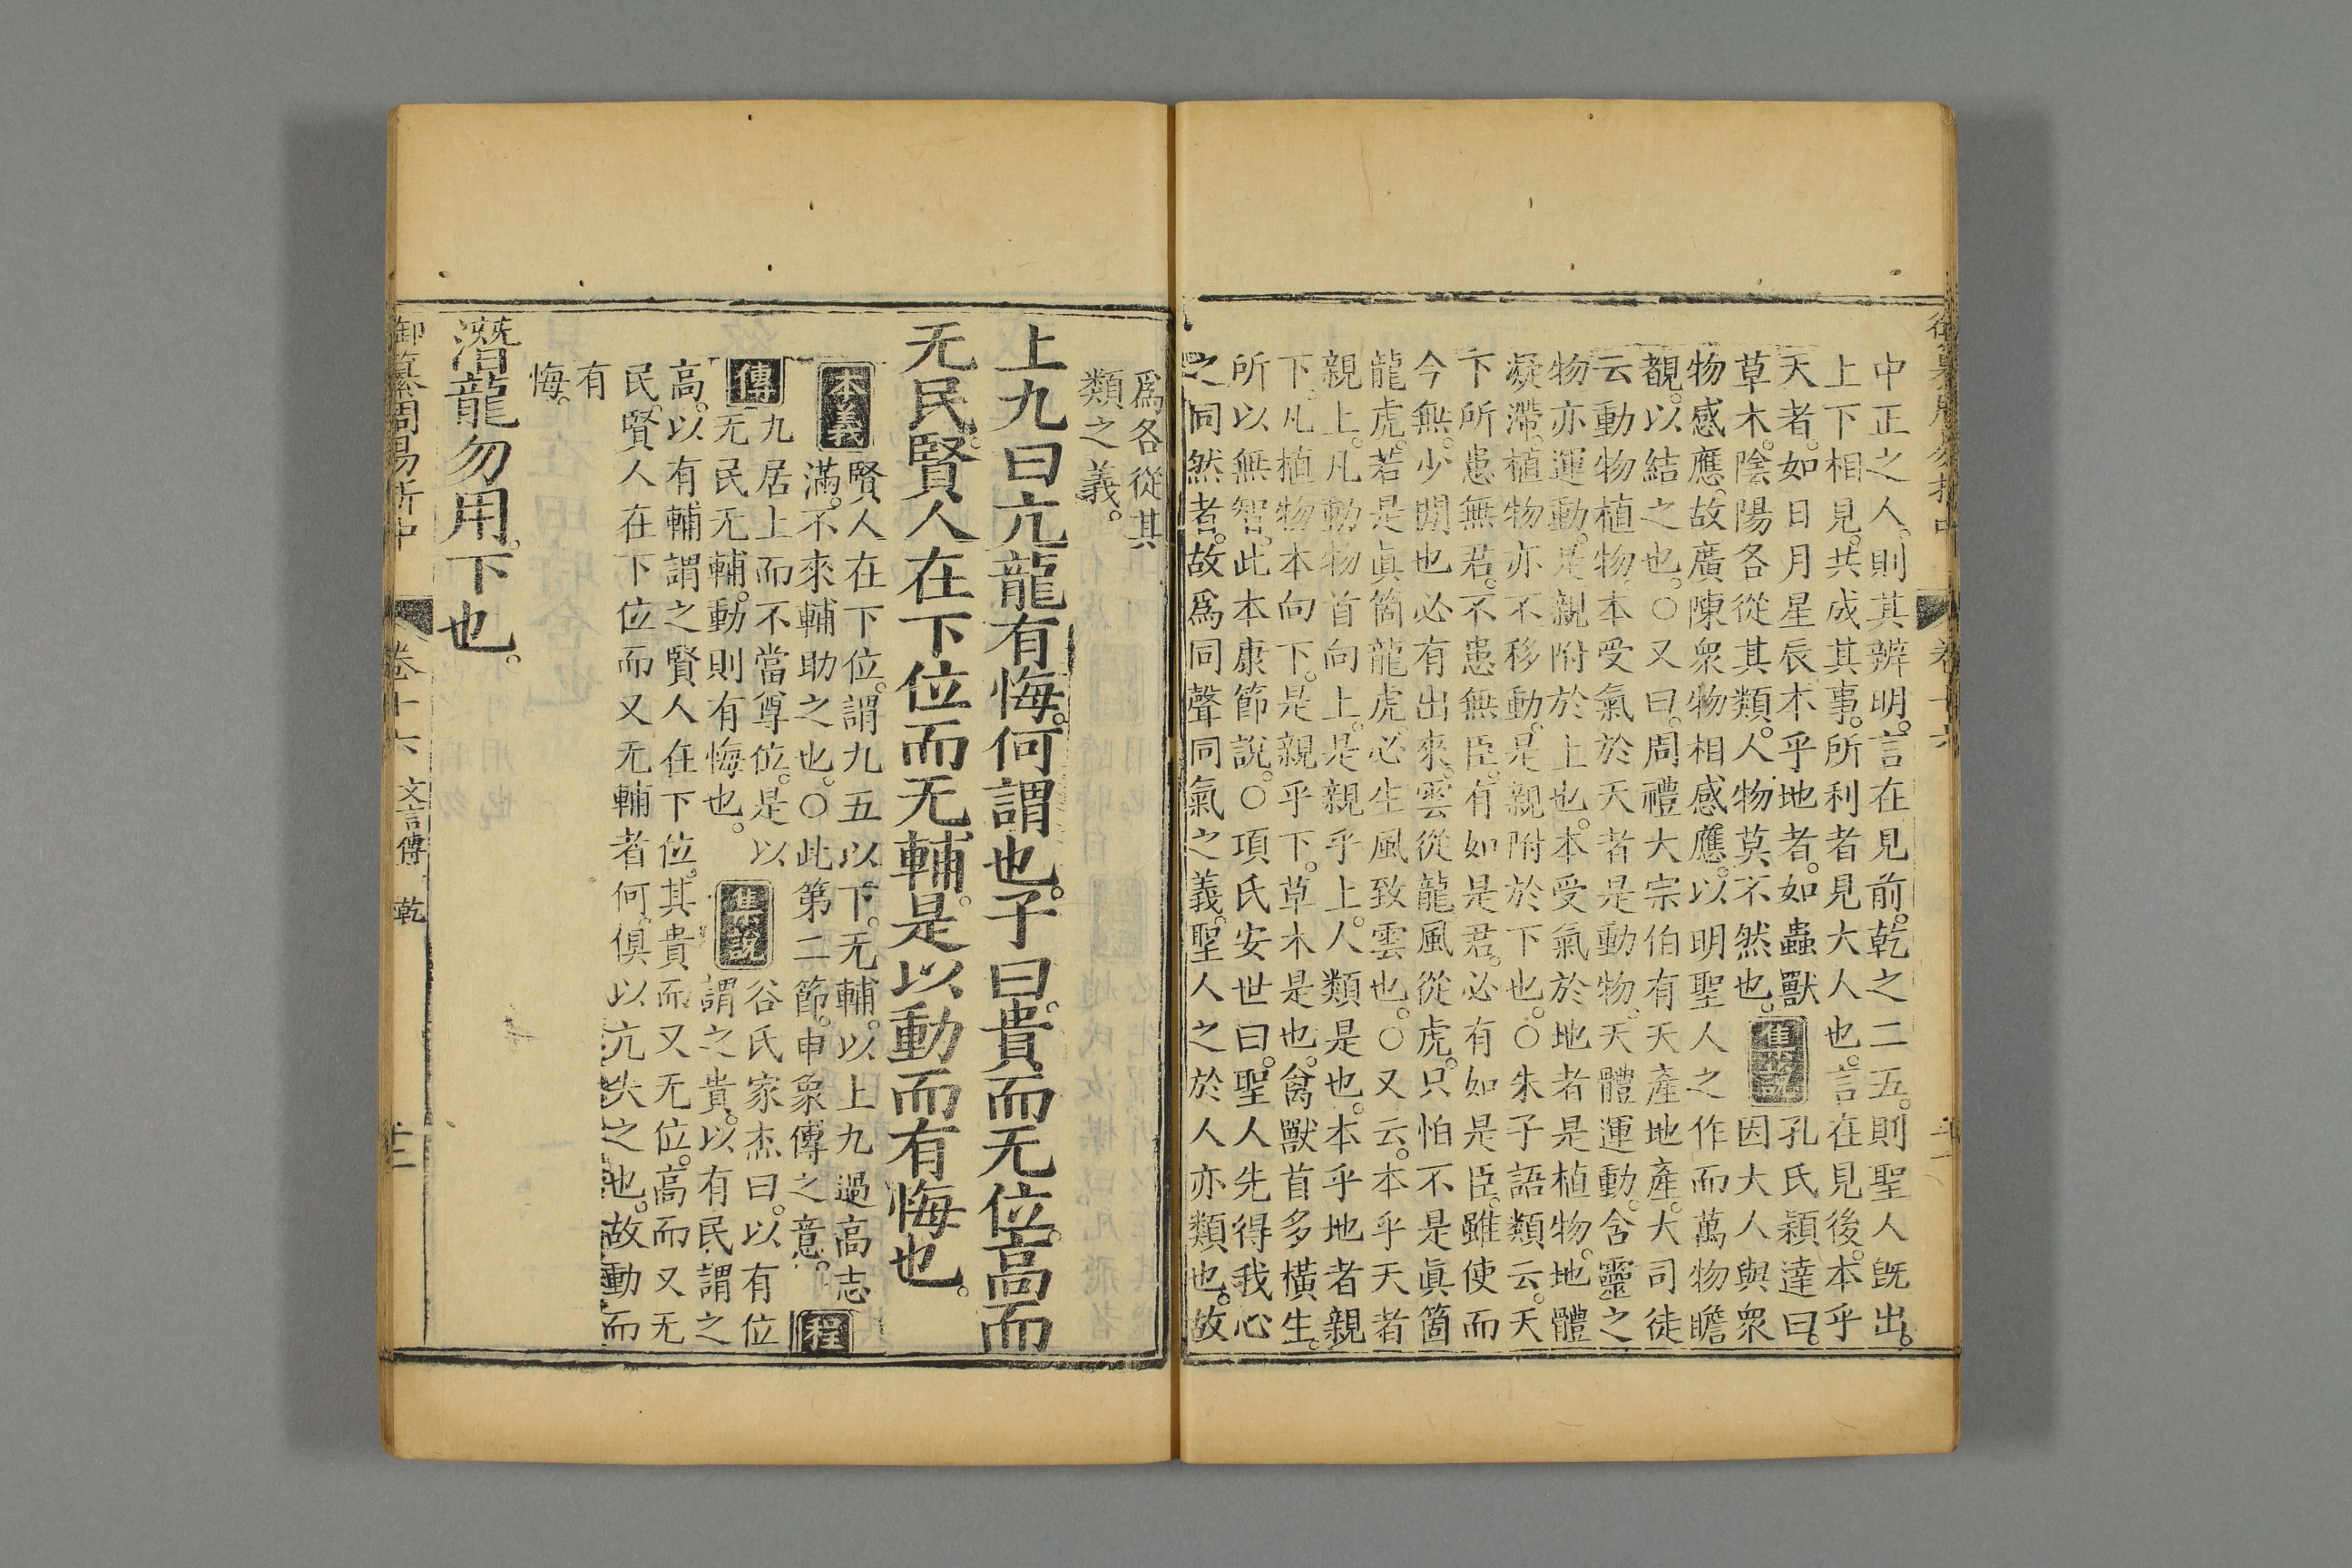 御纂周易折中 卷十六
中正之人。則其辨明。言在見前。乾之二五。則聖人旣出。
上下相見。共成其事。所利者見大人也。言在見後。本乎
天者。如日月星辰。本乎地者。如蟲獸
草木。陰陽各從其類。人物莫不然也。
集說
孔氏穎達曰。
因大人與衆
物感應。故廣陳衆物相感應。以明聖人之作而萬物瞻
覩。以結之也。○又曰。周禮大宗伯有天產地產。大司徒
云動物植物。本受氣於天者是動物。天體運動。含靈之
物亦運動。是親附於上也。本受氣於地者是植物。地體
凝滯。植物亦不移動。是親附於下也。○朱子語類云。天
下所患無君。不患無臣。有如是君。必有如是臣。雖使而
今無。少閒也必有出來。雲從龍風從虎。只怕不是眞箇
龍虎。若是眞箇龍虎。必生風致雲也。○又云。本乎天者
親上。凡動物首向上。是親乎上。人類是也。本乎地者親
下。凡植物本向下。是親乎下。草木是也。禽獸首多橫生。
所以無智。此本康節說。○項氏安世曰。聖人先得我心
之同然者。故爲同聲同氣之義。聖人之於人亦類也。故
爲各從其
類之義。
上九曰亢龍有悔。何謂也。子曰。貴而无位。高而
无民。賢人在下位而无輔。是以動而有悔也。
本義
賢人在下位。謂九五以下。无輔。以上九過高志
滿。不來輔助之也。○此第二節。申象傳之意。
程
傳
九居上而不當尊位。是以
无民无輔。動則有悔也。
集說
谷氏家杰曰。以有位
謂之貴。以有民謂之
高。以有輔謂之賢人在下位。其貴而又无位。高而又无
民。賢人在下位而又无輔者何。俱以亢失之也。故動而
有
悔。
潛龍勿用。下也。
御纂周易折中 卷十六 文言傳 乾 十二